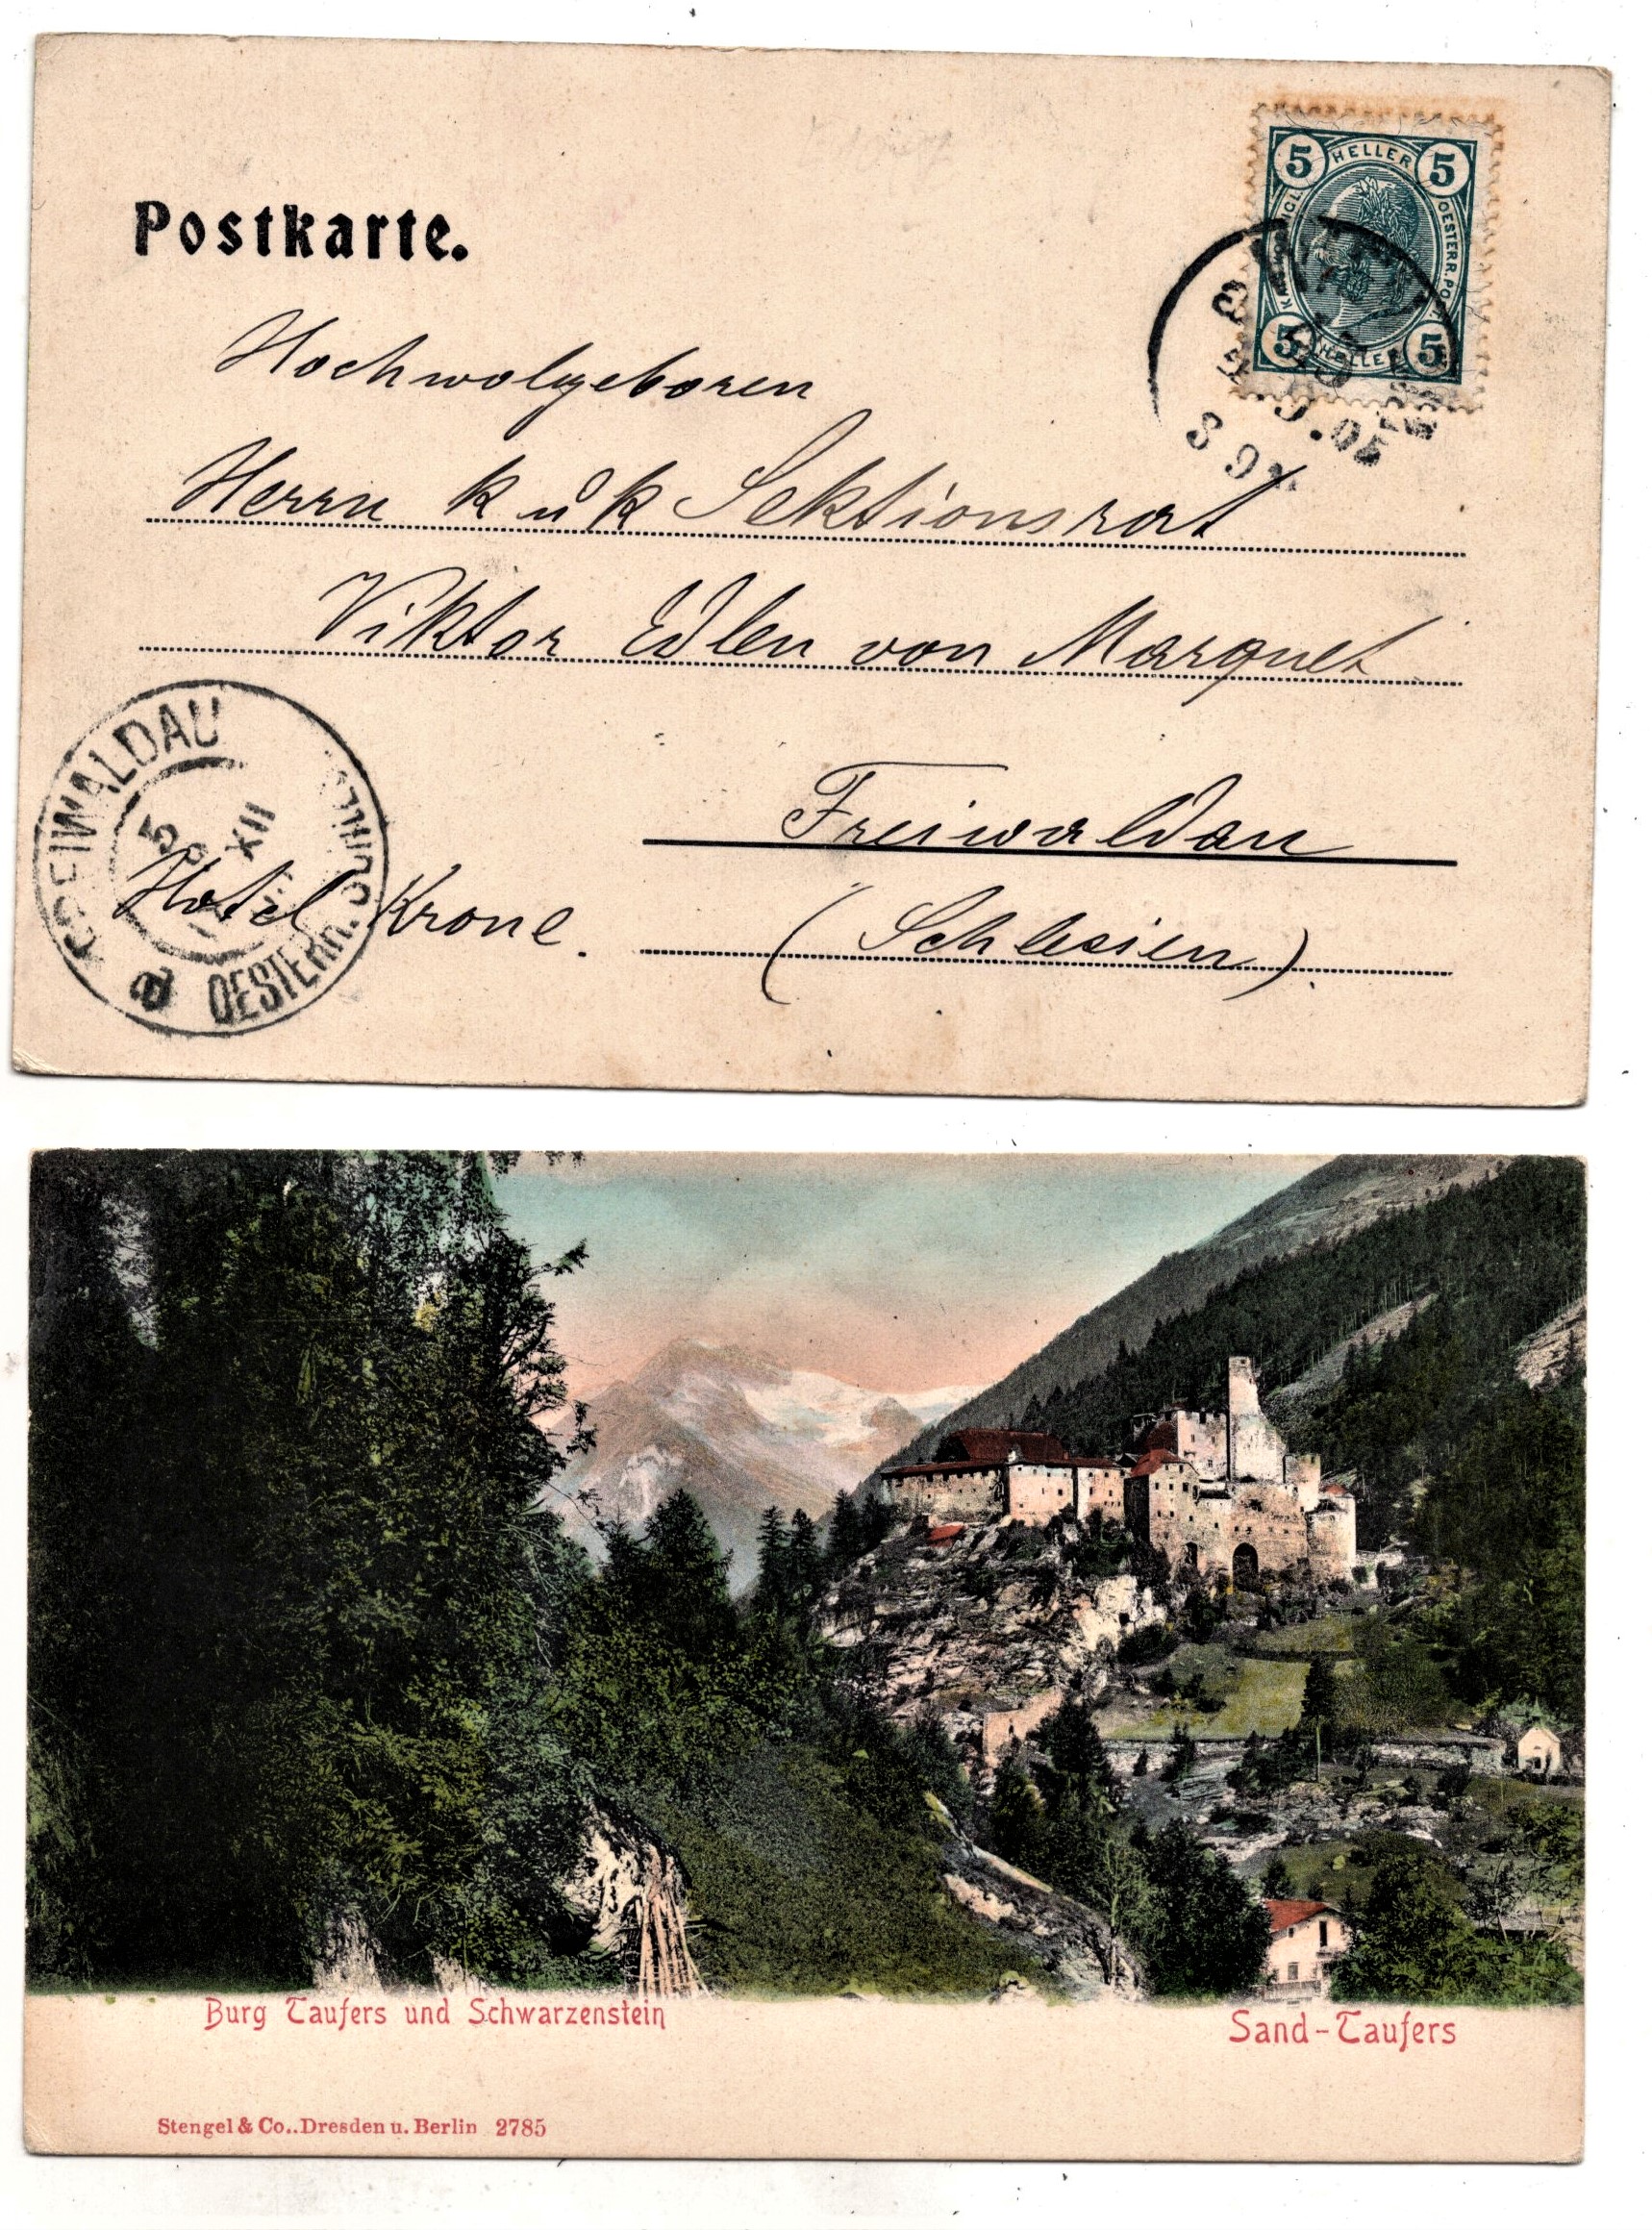 Postkarte.
5 HELLER 5
OESTERR. PO
5 HELLER 5
Hochwolgeboren
Herrn k u k Sektionsrat
Viktor Edlen von Marquet
Freiwaldau
Hotel Krone.
(Schlesien).
FREIWALDAU
5
XII
a OESTERR.
Burg Taufers und Schwarzenstein
Sand-Taufers
Stengel & Co., Dresden u. Berlin 2785